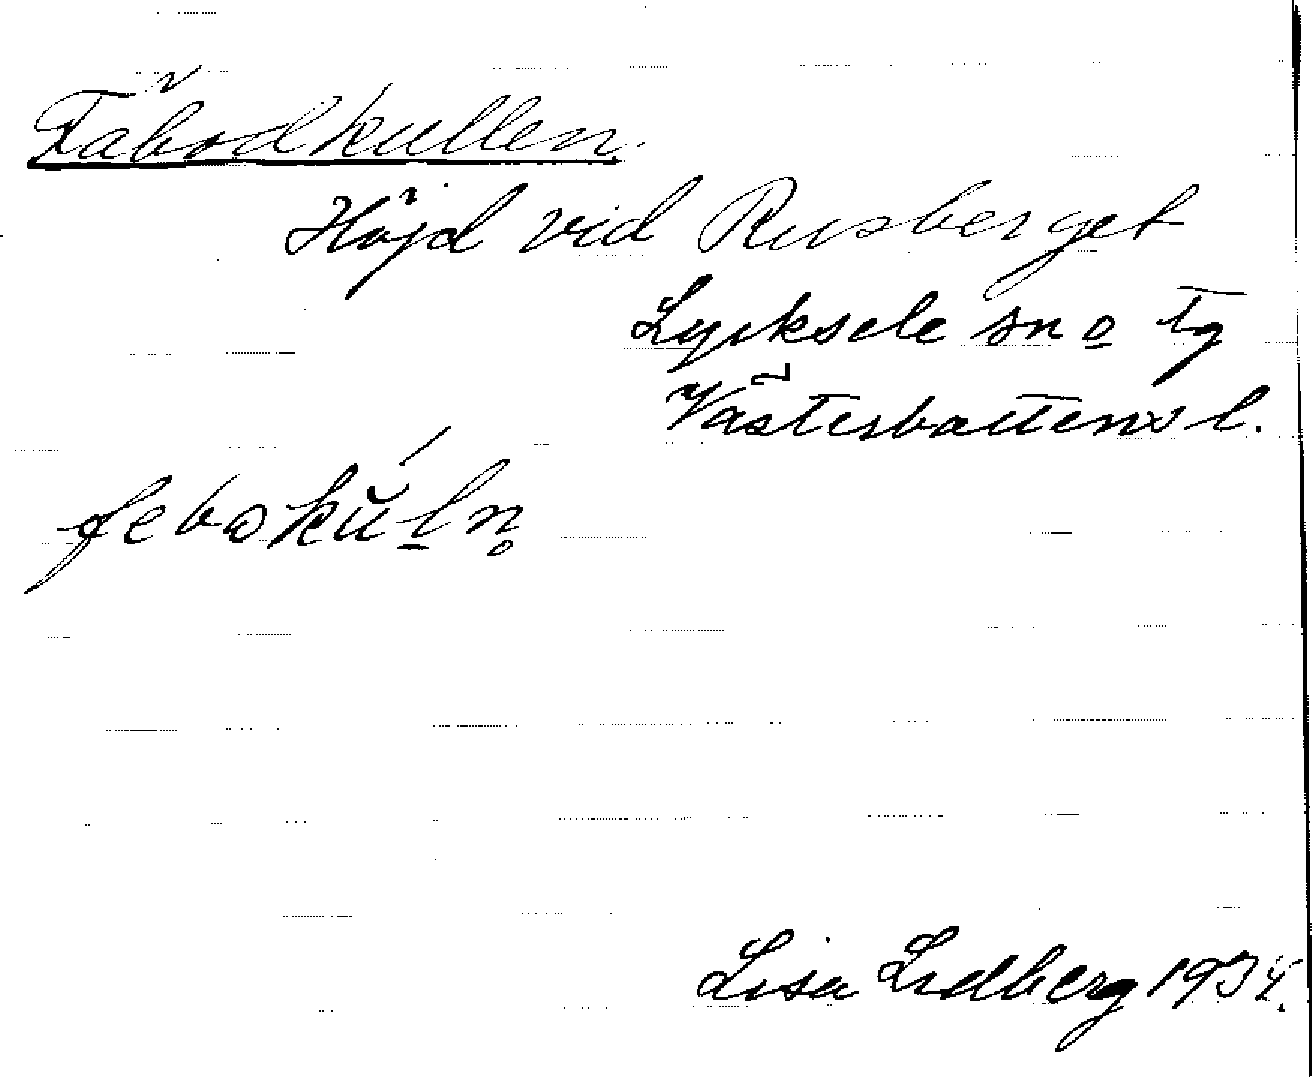 Fäbodkullen.
Höjd vid Rusberget
Lycksele sn o tg
Västerbottens l.
febokŭ́ln̥
Lisa Lidberg 1934.